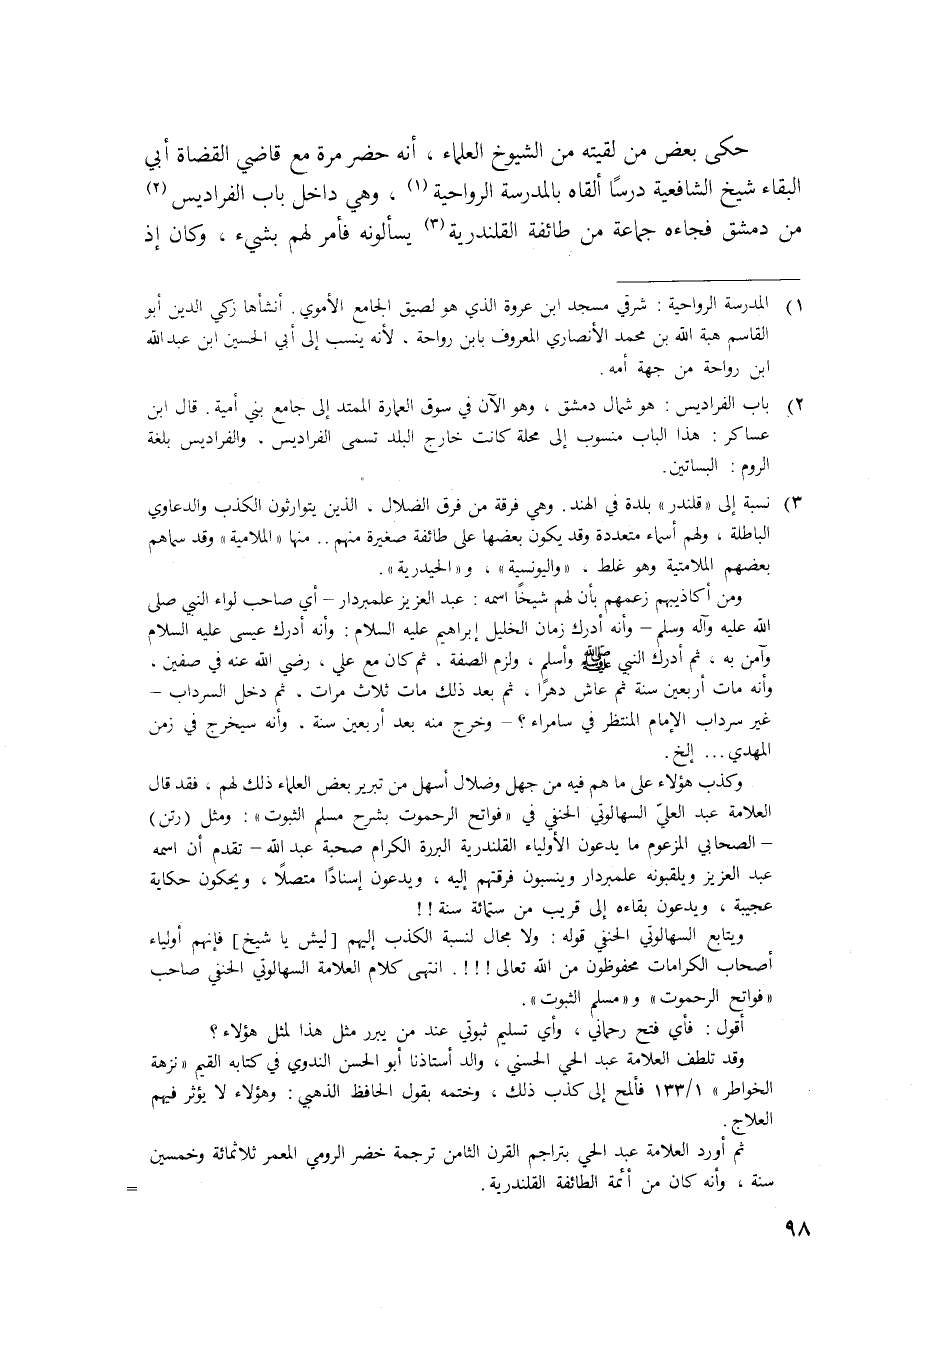 حكى بعض من لقيته من الشيوخ العلماء ، أنه حضر مرة مع قاضي القضاة أبي
البقاء شيخ الشافعية درسًا ألقاه بالمدرسة الرواحية (١) ، وهي داخل باب الفراديس (٢)
من دمشق فجاءه جماعة من طائفة القلندرية (٣) يسألونه فأمر لهم بشيء ، وكان إذ
١) المدرسة الرواحية : شرقي مسجد ابن عروة الذي هو لصيق الجامع الأموي . أنشأها زكي الدين أبو
القاسم هبة الله بن محمد الأنصاري المعروف بابن رواحة . لأنه ينسب إلى أبي الحسين ابن عبد الله
ابن رواحة من جهة أمه .
٢) باب الفراديس : هو شمال دمشق ، وهو الآن في سوق العمارة الممتد إلى جامع بني أمية . قال ابن
عساكر : هذا الباب منسوب إلى محلة كانت خارج البلد تسمى الفراديس . والفراديس بلغة
الروم : البساتين .
٣) نسبة إلى «قلندر» بلدة في الهند . وهي فرقة من فرق الضلال . الذين يتوارثون الكذب والدعاوي
الباطلة ، ولهم أسماء متعددة وقد يكون بعضها على طائفة صغيرة منهم .. منها «الملامية» وقد سماهم
بعضهم الملامتية وهو غلط ، «واليونسية» ، و«الحيدرية» .
ومن أكاذيبهم زعمهم بأن لهم شيخًا اسمه : عبد العزيز علمبردار – أي صاحب لواء النبي صلى
الله عليه وآله وسلم – وأنه أدرك زمان الخليل إبراهيم عليه السلام : وأنه أدرك عيسى عليه السلام
وآمن به ، ثم أدرك النبي ﷺ وأسلم ، ولزم الصفة . ثم كان مع علي ، رضي الله عنه في صفين ،
وأنه مات أربعين سنة ثم عاش دهرًا ، ثم بعد ذلك مات ثلاث مرات . ثم دخل السرداب –
غير سرداب الإمام المنتظر في سامراء ؟ – وخرج منه بعد أربعين سنة . وأنه سيخرج في زمن
المهدي ... إلخ .
وكذب هؤلاء على ما هم فيه من جهل وضلال أسهل من تبرير بعض العلماء ذلك لهم ، فقد قال
العلامة عبد العليّ السهالوتي الحنفي في «فواتح الرحموت بشرح مسلم الثبوت» : ومثل (رتن)
– الصحابي المزعوم ما يدعون الأولياء القلندرية البررة الكرام صحبة عبد الله – تقدم أن اسمه
عبد العزيز ويلقبونه علمبردار وينسبون فرقتهم إليه ، ويدعون إسنادًا متصلًا ، ويحكون حكاية
عجيبة ، ويدعون بقاءه إلى قريب من ستمائة سنة !!
ويتابع السهالوتي الحنفي قوله : ولا مجال لنسبة الكذب إليهم [ليش يا شيخ] فإنهم أولياء
أصحاب الكرامات محفوظون من الله تعالى !!! . انتهى كلام العلامة السهالوتي الحنفي صاحب
«فواتح الرحموت» و«مسلم الثبوت» .
أقول : فأي فتح رحماني ، وأي تسليم ثبوتي عند من يبرر مثل هذا لمثل هؤلاء ؟
وقد تلطف العلامة عبد الحي الحسني ، والد أستاذنا أبو الحسن الندوي في كتابه القيم «نزهة
الخواطر» ١٣٣/١ فألمح إلى كذب ذلك ، وختمه بقول الحافظ الذهبي : وهؤلاء لا يؤثر فيهم
العلاج .
ثم أورد العلامة عبد الحي بتراجم القرن الثامن ترجمة خضر الرومي المعمر ثلاثمائة وخمسين
سنة ، وأنه كان من أئمة الطائفة القلندرية .
=
٩٨